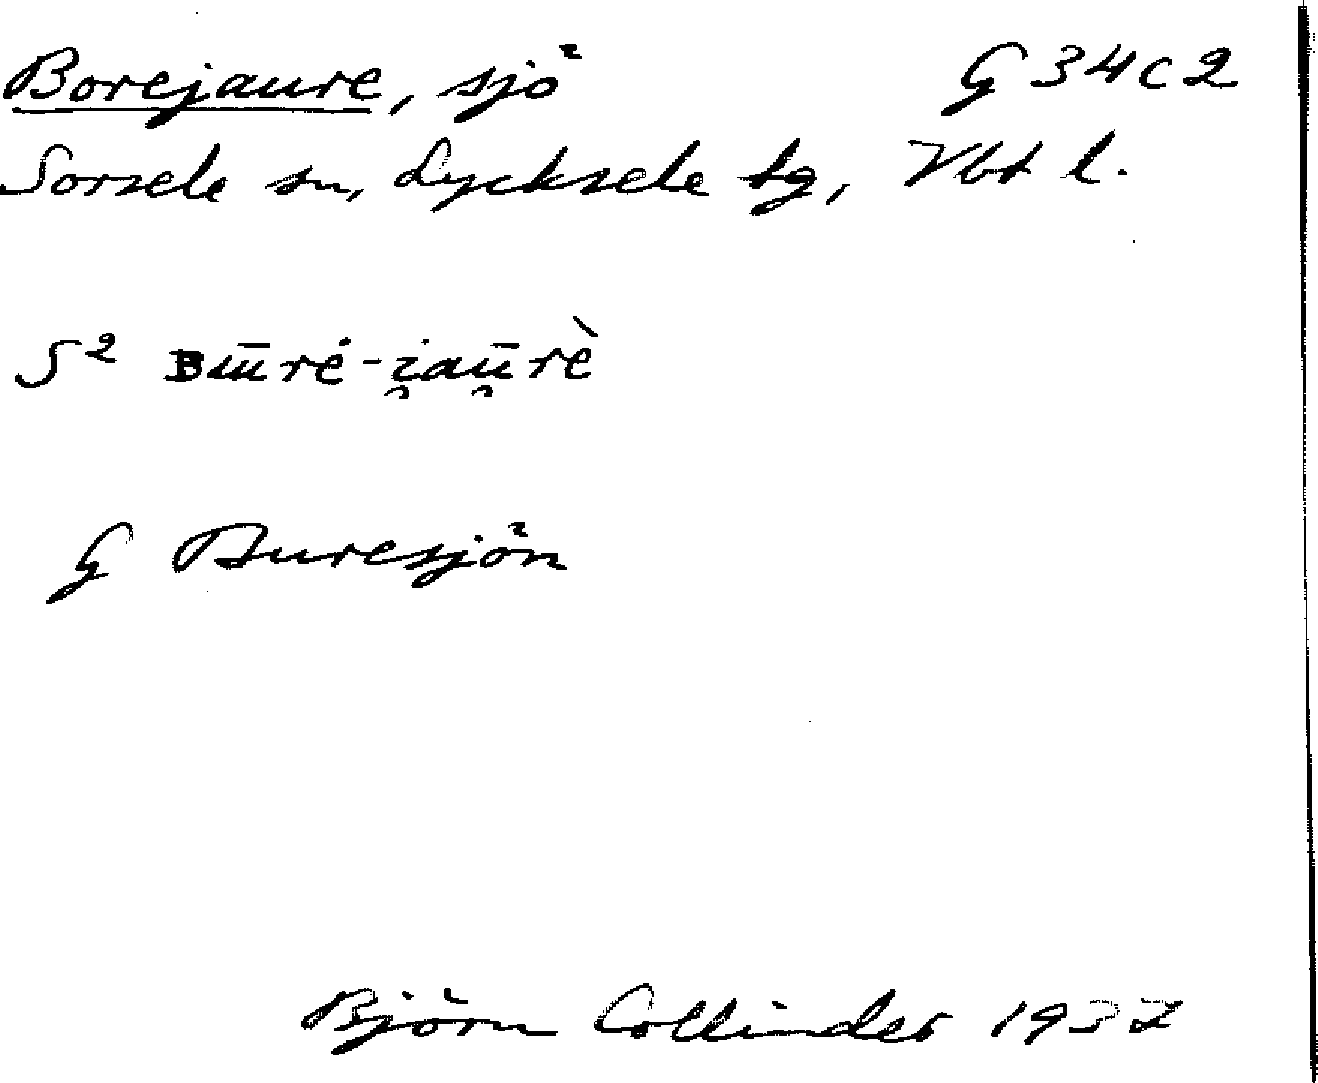 Borejaure, sjö G 34c2
Sorsele sn, Lycksele tg, Vbt l.
S² ʙɯ̄rė-i̯aū̯rè
G Buresjön
Björn Collinder 1937